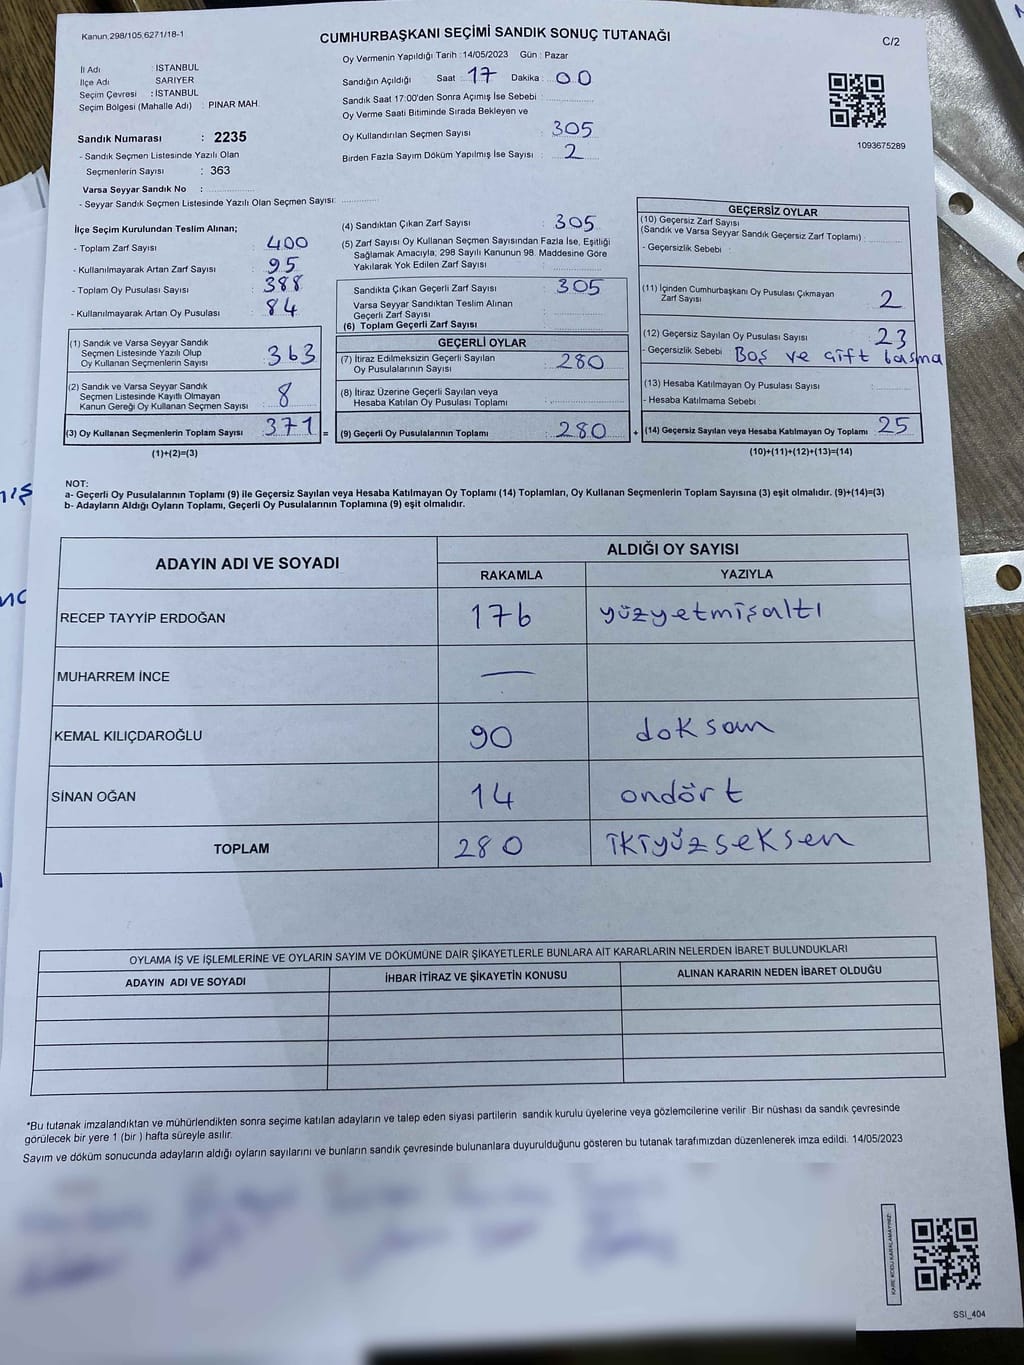 Kanun.298/105,6271/18-1
CUMHURBAŞKANI SEÇİMİ SANDIK SONUÇ TUTANAĞI
C/2
İl Adı : İSTANBUL
İlçe Adı : SARIYER
Seçim Çevresi : İSTANBUL
Seçim Bölgesi (Mahalle Adı) : PINAR MAH.
Sandık Numarası : 2235
- Sandık Seçmen Listesinde Yazılı Olan
Seçmenlerin Sayısı : 363
Varsa Seyyar Sandık No :
- Seyyar Sandık Seçmen Listesinde Yazılı Olan Seçmen Sayısı:
Oy Vermenin Yapıldığı Tarih :14/05/2023 Gün : Pazar
Sandığın Açıldığı Saat : 17 Dakika : 00
Sandık Saat 17:00'den Sonra Açımış İse Sebebi :
Oy Verme Saati Bitiminde Sırada Bekleyen ve
Oy Kullandırılan Seçmen Sayısı : 305
Birden Fazla Sayım Döküm Yapılmış İse Sayısı : 2
1093675289
İlçe Seçim Kurulundan Teslim Alınan;
- Toplam Zarf Sayısı : 400
- Kullanılmayarak Artan Zarf Sayısı : 95
- Toplam Oy Pusulası Sayısı : 388
- Kullanılmayarak Artan Oy Pusulası : 84
(1) Sandık ve Varsa Seyyar Sandık
Seçmen Listesinde Yazılı Olup
Oy Kullanan Seçmenlerin Sayısı : 363
(2) Sandık ve Varsa Seyyar Sandık
Seçmen Listesinde Kayıtlı Olmayan
Kanun Gereği Oy Kullanan Seçmen Sayısı : 8
(3) Oy Kullanan Seçmenlerin Toplam Sayısı : 371 =
(1)+(2)=(3)
(4) Sandıktan Çıkan Zarf Sayısı : 305
(5) Zarf Sayısı Oy Kullanan Seçmen Sayısından Fazla İse, Eşitliği
Sağlamak Amacıyla, 298 Sayılı Kanunun 98. Maddesine Göre
Yakılarak Yok Edilen Zarf Sayısı :
Sandıkta Çıkan Geçerli Zarf Sayısı : 305
Varsa Seyyar Sandıktan Teslim Alınan
Geçerli Zarf Sayısı :
(6) Toplam Geçerli Zarf Sayısı :
GEÇERLİ OYLAR
(7) İtiraz Edilmeksizin Geçerli Sayılan
Oy Pusulalarının Sayısı : 280
(8) İtiraz Üzerine Geçerli Sayılan veya
Hesaba Katılan Oy Pusulası Toplamı :
(9) Geçerli Oy Pusulalarının Toplamı : 280 +
GEÇERSİZ OYLAR
(10) Geçersiz Zarf Sayısı
(Sandık ve Varsa Seyyar Sandık Geçersiz Zarf Toplamı) :
- Geçersizlik Sebebi :
(11) İçinden Cumhurbaşkanı Oy Pusulası Çıkmayan
Zarf Sayısı : 2
(12) Geçersiz Sayılan Oy Pusulası Sayısı : 23
- Geçersizlik Sebebi : Boş ve çift basma
(13) Hesaba Katılmayan Oy Pusulası Sayısı :
- Hesaba Katılmama Sebebi :
(14) Geçersiz Sayılan veya Hesaba Katılmayan Oy Toplamı : 25
(10)+(11)+(12)+(13)=(14)
NOT:
a- Geçerli Oy Pusulalarının Toplamı (9) ile Geçersiz Sayılan veya Hesaba Katılmayan Oy Toplamı (14) Toplamları, Oy Kullanan Seçmenlerin Toplam Sayısına (3) eşit olmalıdır. (9)+(14)=(3)
b- Adayların Aldığı Oyların Toplamı, Geçerli Oy Pusulalarının Toplamına (9) eşit olmalıdır.
ADAYIN ADI VE SOYADI
ALDIĞI OY SAYISI
RAKAMLA YAZIYLA
RECEP TAYYİP ERDOĞAN 176 yüzyetmişaltı
MUHARREM İNCE —
KEMAL KILIÇDAROĞLU 90 doksan
SİNAN OĞAN 14 ondört
TOPLAM 280 ikiyüzseksen
OYLAMA İŞ VE İŞLEMLERİNE VE OYLARIN SAYIM VE DÖKÜMÜNE DAİR ŞİKAYETLERLE BUNLARA AİT KARARLARIN NELERDEN İBARET BULUNDUKLARI
ADAYIN ADI VE SOYADI İHBAR İTİRAZ VE ŞİKAYETİN KONUSU ALINAN KARARIN NEDEN İBARET OLDUĞU
*Bu tutanak imzalandıktan ve mühürlendikten sonra seçime katılan adayların ve talep eden siyasi partilerin sandık kurulu üyelerine veya gözlemcilerine verilir .Bir nüshası da sandık çevresinde
görülecek bir yere 1 (bir ) hafta süreyle asılır.
Sayım ve döküm sonucunda adayların aldığı oyların sayılarını ve bunların sandık çevresinde bulunanlara duyurulduğunu gösteren bu tutanak tarafımızdan düzenlenerek imza edildi. 14/05/2023
KARE KODU KARALAMAYINIZ!
SSİ_404